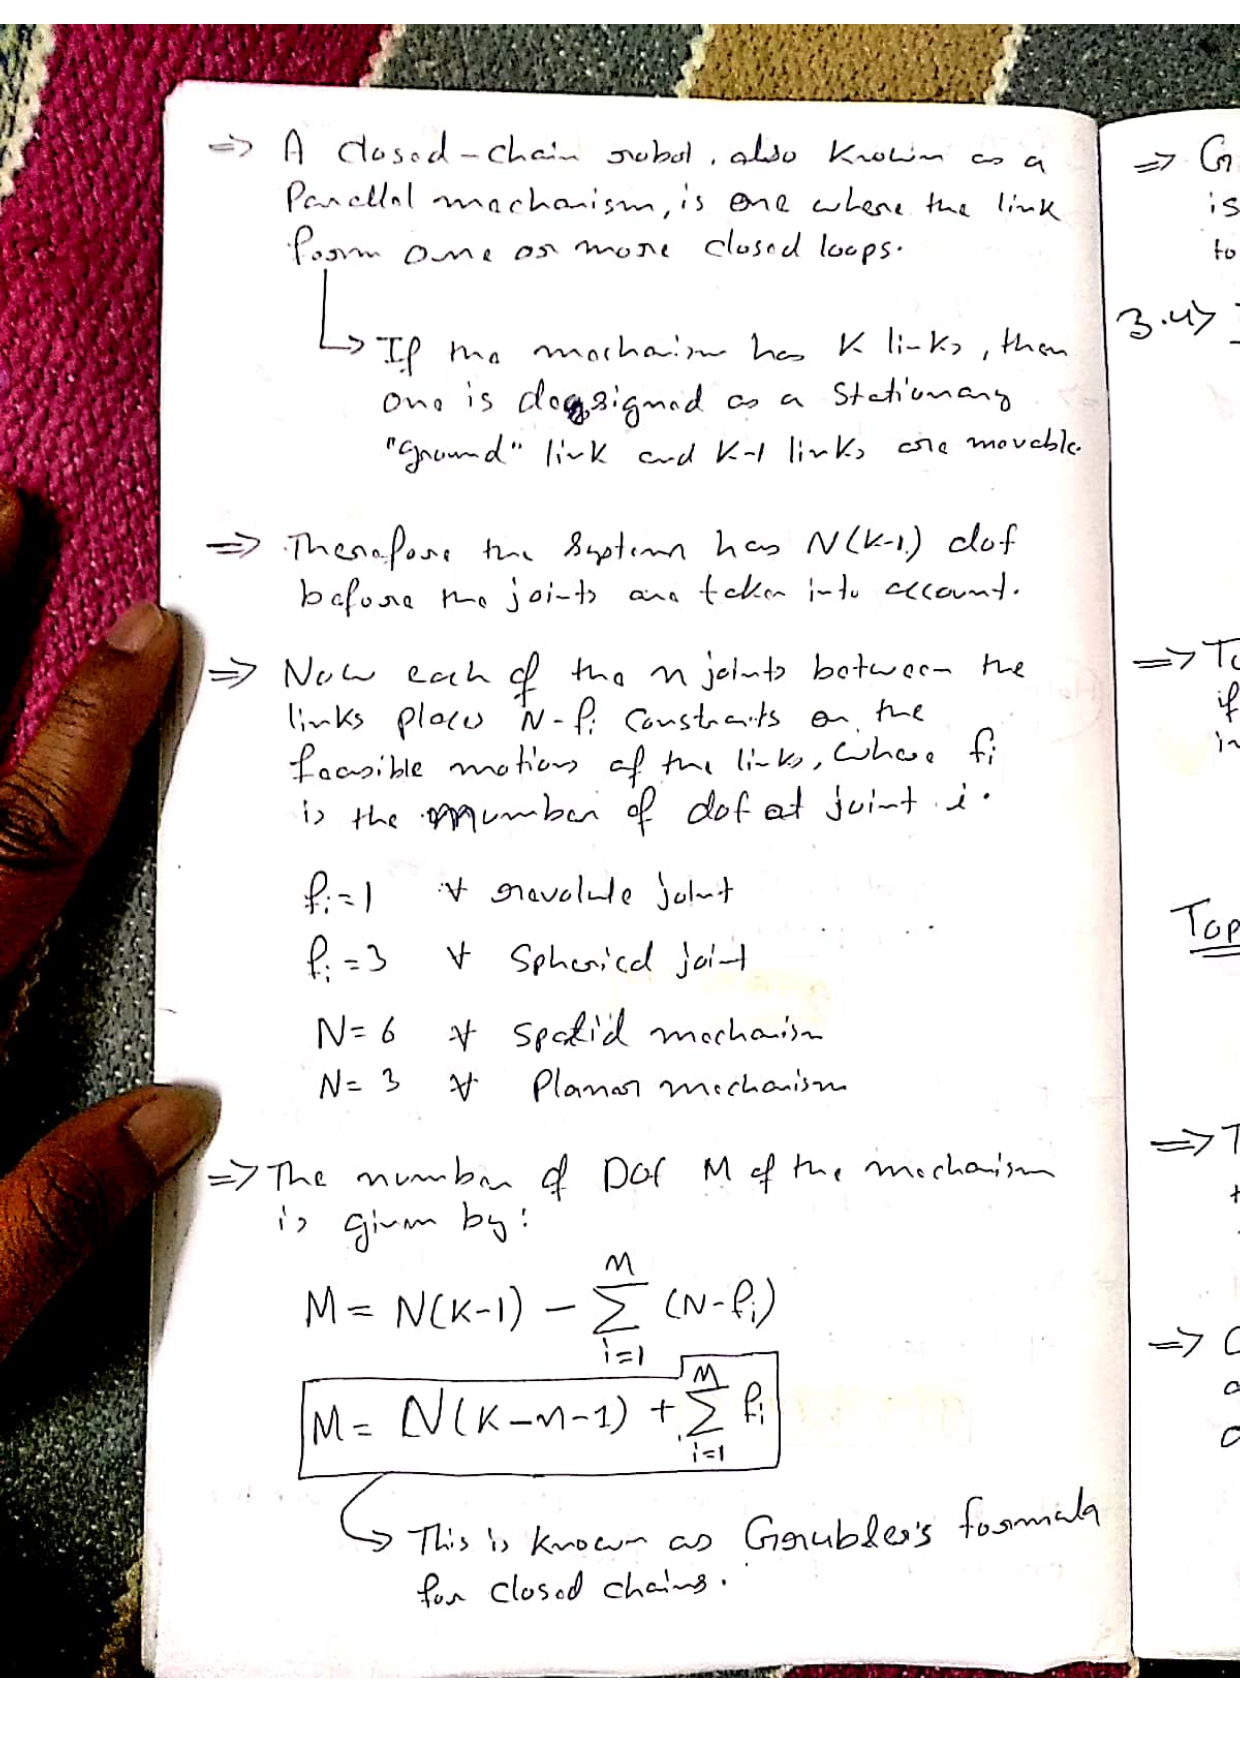 ⇒ A closed-chain robot, also known as a
Parallel mechanism, is one where the link
form one or more closed loops.
↳ If the mechanism has K links, then
one is designed as a stationary
"ground" link and K-1 links are movable.
⇒ Therefore the system has N(K-1) dof
before the joints are taken into account.
⇒ Now each of the n joints between the
links places N-fᵢ constraints on the
feasible motions of the links, where fᵢ
is the number of dof at joint i.
fᵢ=1 ∀ revolute joint
fᵢ=3 ∀ Spherical joint
N=6 ∀ spatial mechanism
N=3 ∀ Planar mechanism
⇒ The number of DOF M of the mechanism
is given by:
M = N(K-1) - ∑_{i=1}^{M} (N-fᵢ)
M = N(K-n-1) + ∑_{i=1}^{M} fᵢ
↳ This is known as Grubler's formula
for closed chains.
⇒ G
is
to
3.4>
⇒ To
if
in
Top
⇒ T
⇒